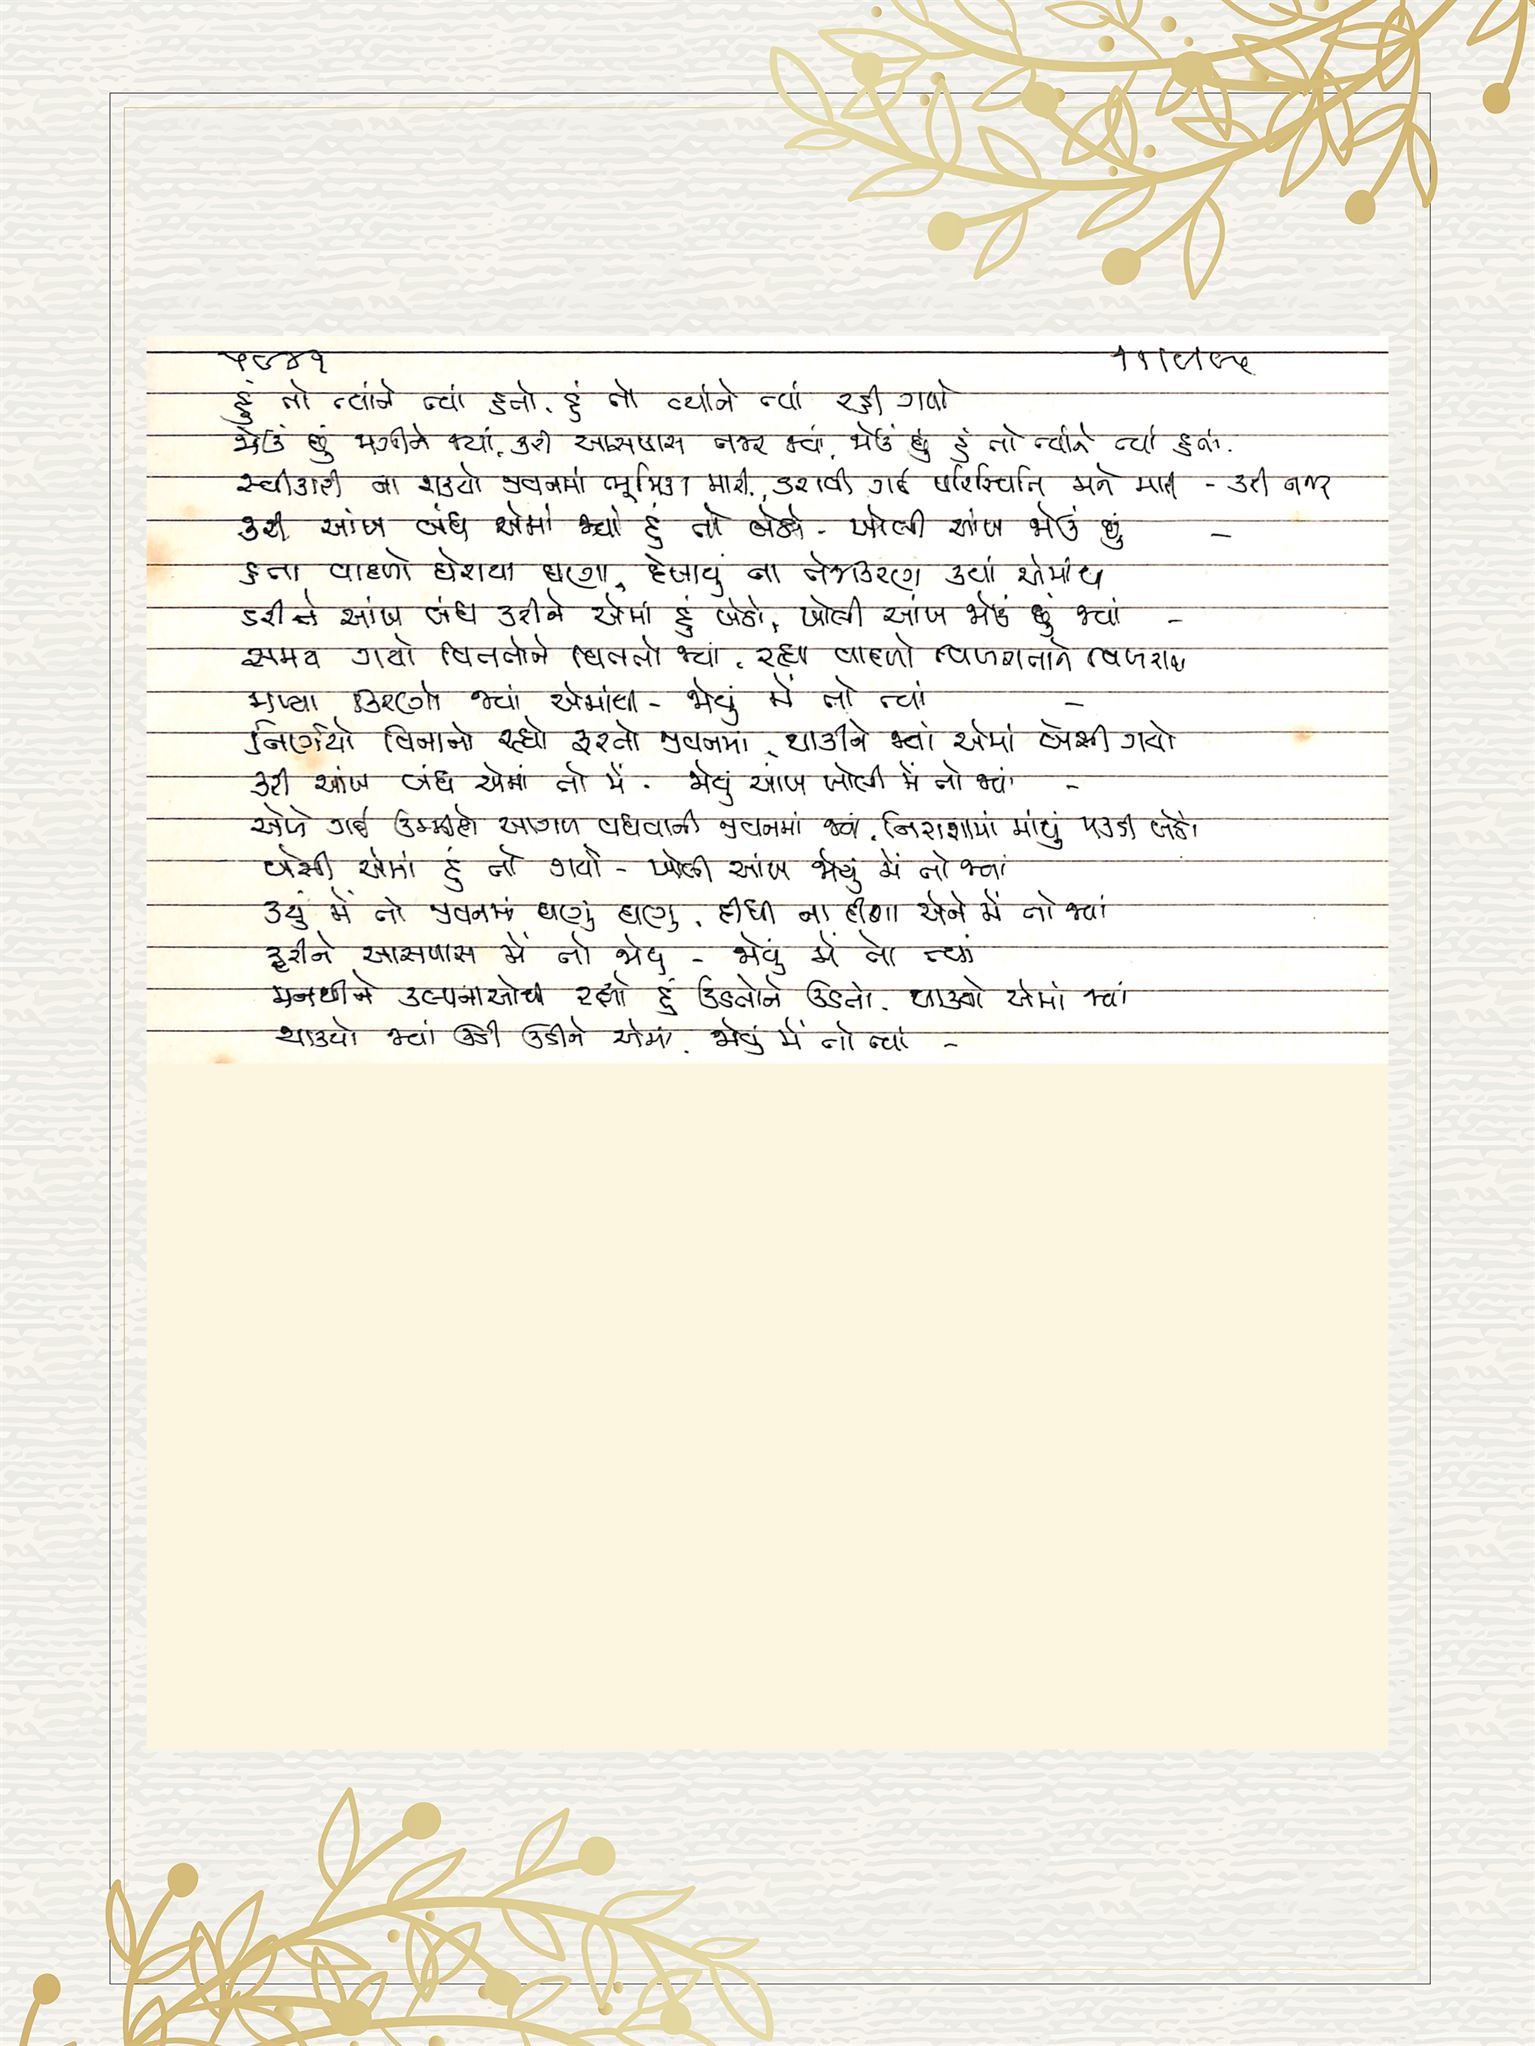 ૫૯૪૧
હું તો ત્યાંને ત્યાં હતો, હું તો ત્યાંને ત્યાં રહી ગયો
જોઉં છું મળીને જ્યાં, કરી આસપાસ નજર જ્યાં, જોઉં છું હું તો ત્યાંને ત્યાં હતો.
સ્વીકારી ના શક્યો જીવનમાં ભૂમિકા મારી, કરાવી ગઈ પરિસ્થિતિ મને માત - કરી નજર
કરી આંખ બંધ એમાં જ્યાં હું તો બેઠો - ખોલી આંખ જોઉં છું -
હતા વાદળો ઘેરાયા ઘણા, દેખાયું ના તેજકિરણ ક્યાં એમાંય
ડરીને આંખ બંધ કરીને એમાં હું બેઠો, ખોલી આંખ જોઉં છું જ્યાં -
સમય ગયો વિતતોને વિતતો જ્યાં, રહ્યા વાદળો વિખરાતાને વિખરાય
મળ્યા કિરણો જ્યાં એમાંથી - જોયું મેં તો ત્યાં -
નિર્ણયો વિનાનો રહ્યો ફરતો જીવનમાં, થાકીને જ્યાં એમાં બેસી ગયો
કરી આંખ બંધ એમાં તો મેં - જોયું આંખ ખોલી મેં તો જ્યાં -
એળે ગઈ ઉમ્મીદો આગળ વધવાની જીવનમાં જ્યાં, નિરાશામાં માથું પકડી બેઠો
બેસી એમાં હું તો ગયો - ખોલી આંખ જોયું મેં તો જ્યાં
કર્યું મેં તો જીવનમાં ઘણું ઘણું, દીધી ના દીશા એને મેં તો જ્યાં
ફરીને આસપાસ મેં તો જોયું - જોયું મેં તો ત્યાં
મનથીને કલ્પનાઓથી રહ્યો હું ઉડતોને ઉડતો, થાક્યો એમાં જ્યાં
થાક્યો જ્યાં ઉડી ઉડીને એમાં, જોયું મેં તો ત્યાં -